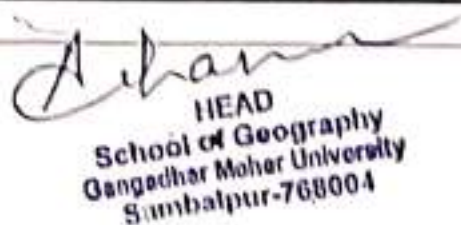 HEAD
School of Geography
Gangadhar Meher University
Sambalpur-768004